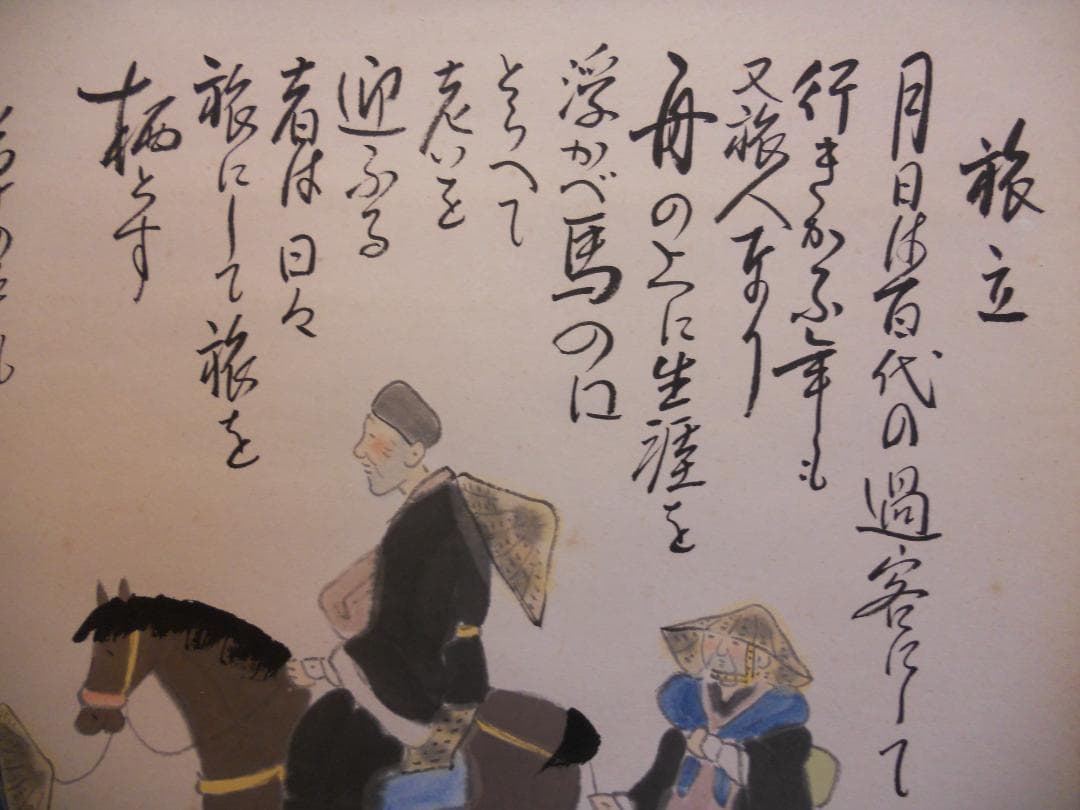 旅立
月日は百代の過客にして
行きかふ年も
又旅人なり
舟の上に生涯を
浮かべ馬の口
とらへて
老いを
迎ふる
者は日々
旅にして旅を
栖とす